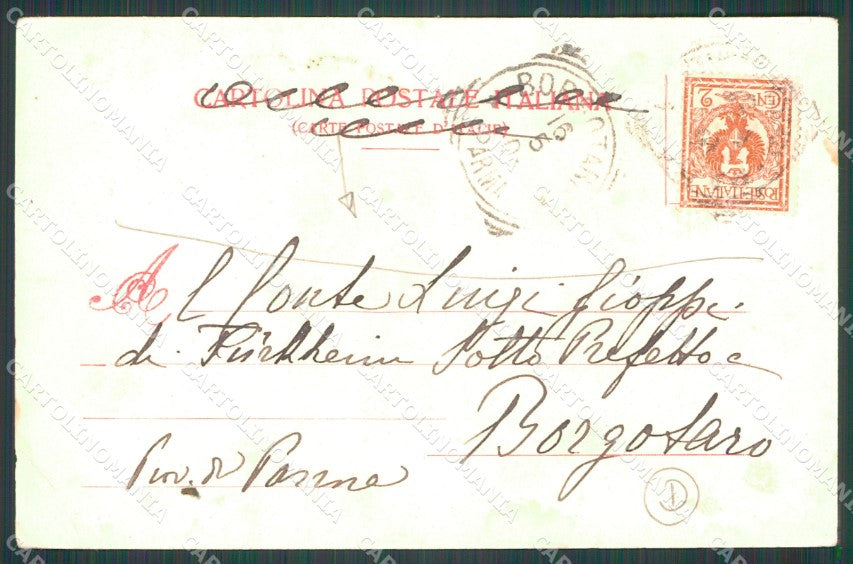 CARTOLINA POSTALE ITALIANA
(CARTE POSTALE D'ITALIE)
BORGOTARO
16
5
PARMA
POSTE ITALIANE
CENT. 2
Al Conte Luigi Gioppi
di Türkheim Sotto Prefetto
Borgotaro
Prov. di Parma
CARTOLINOMANIA